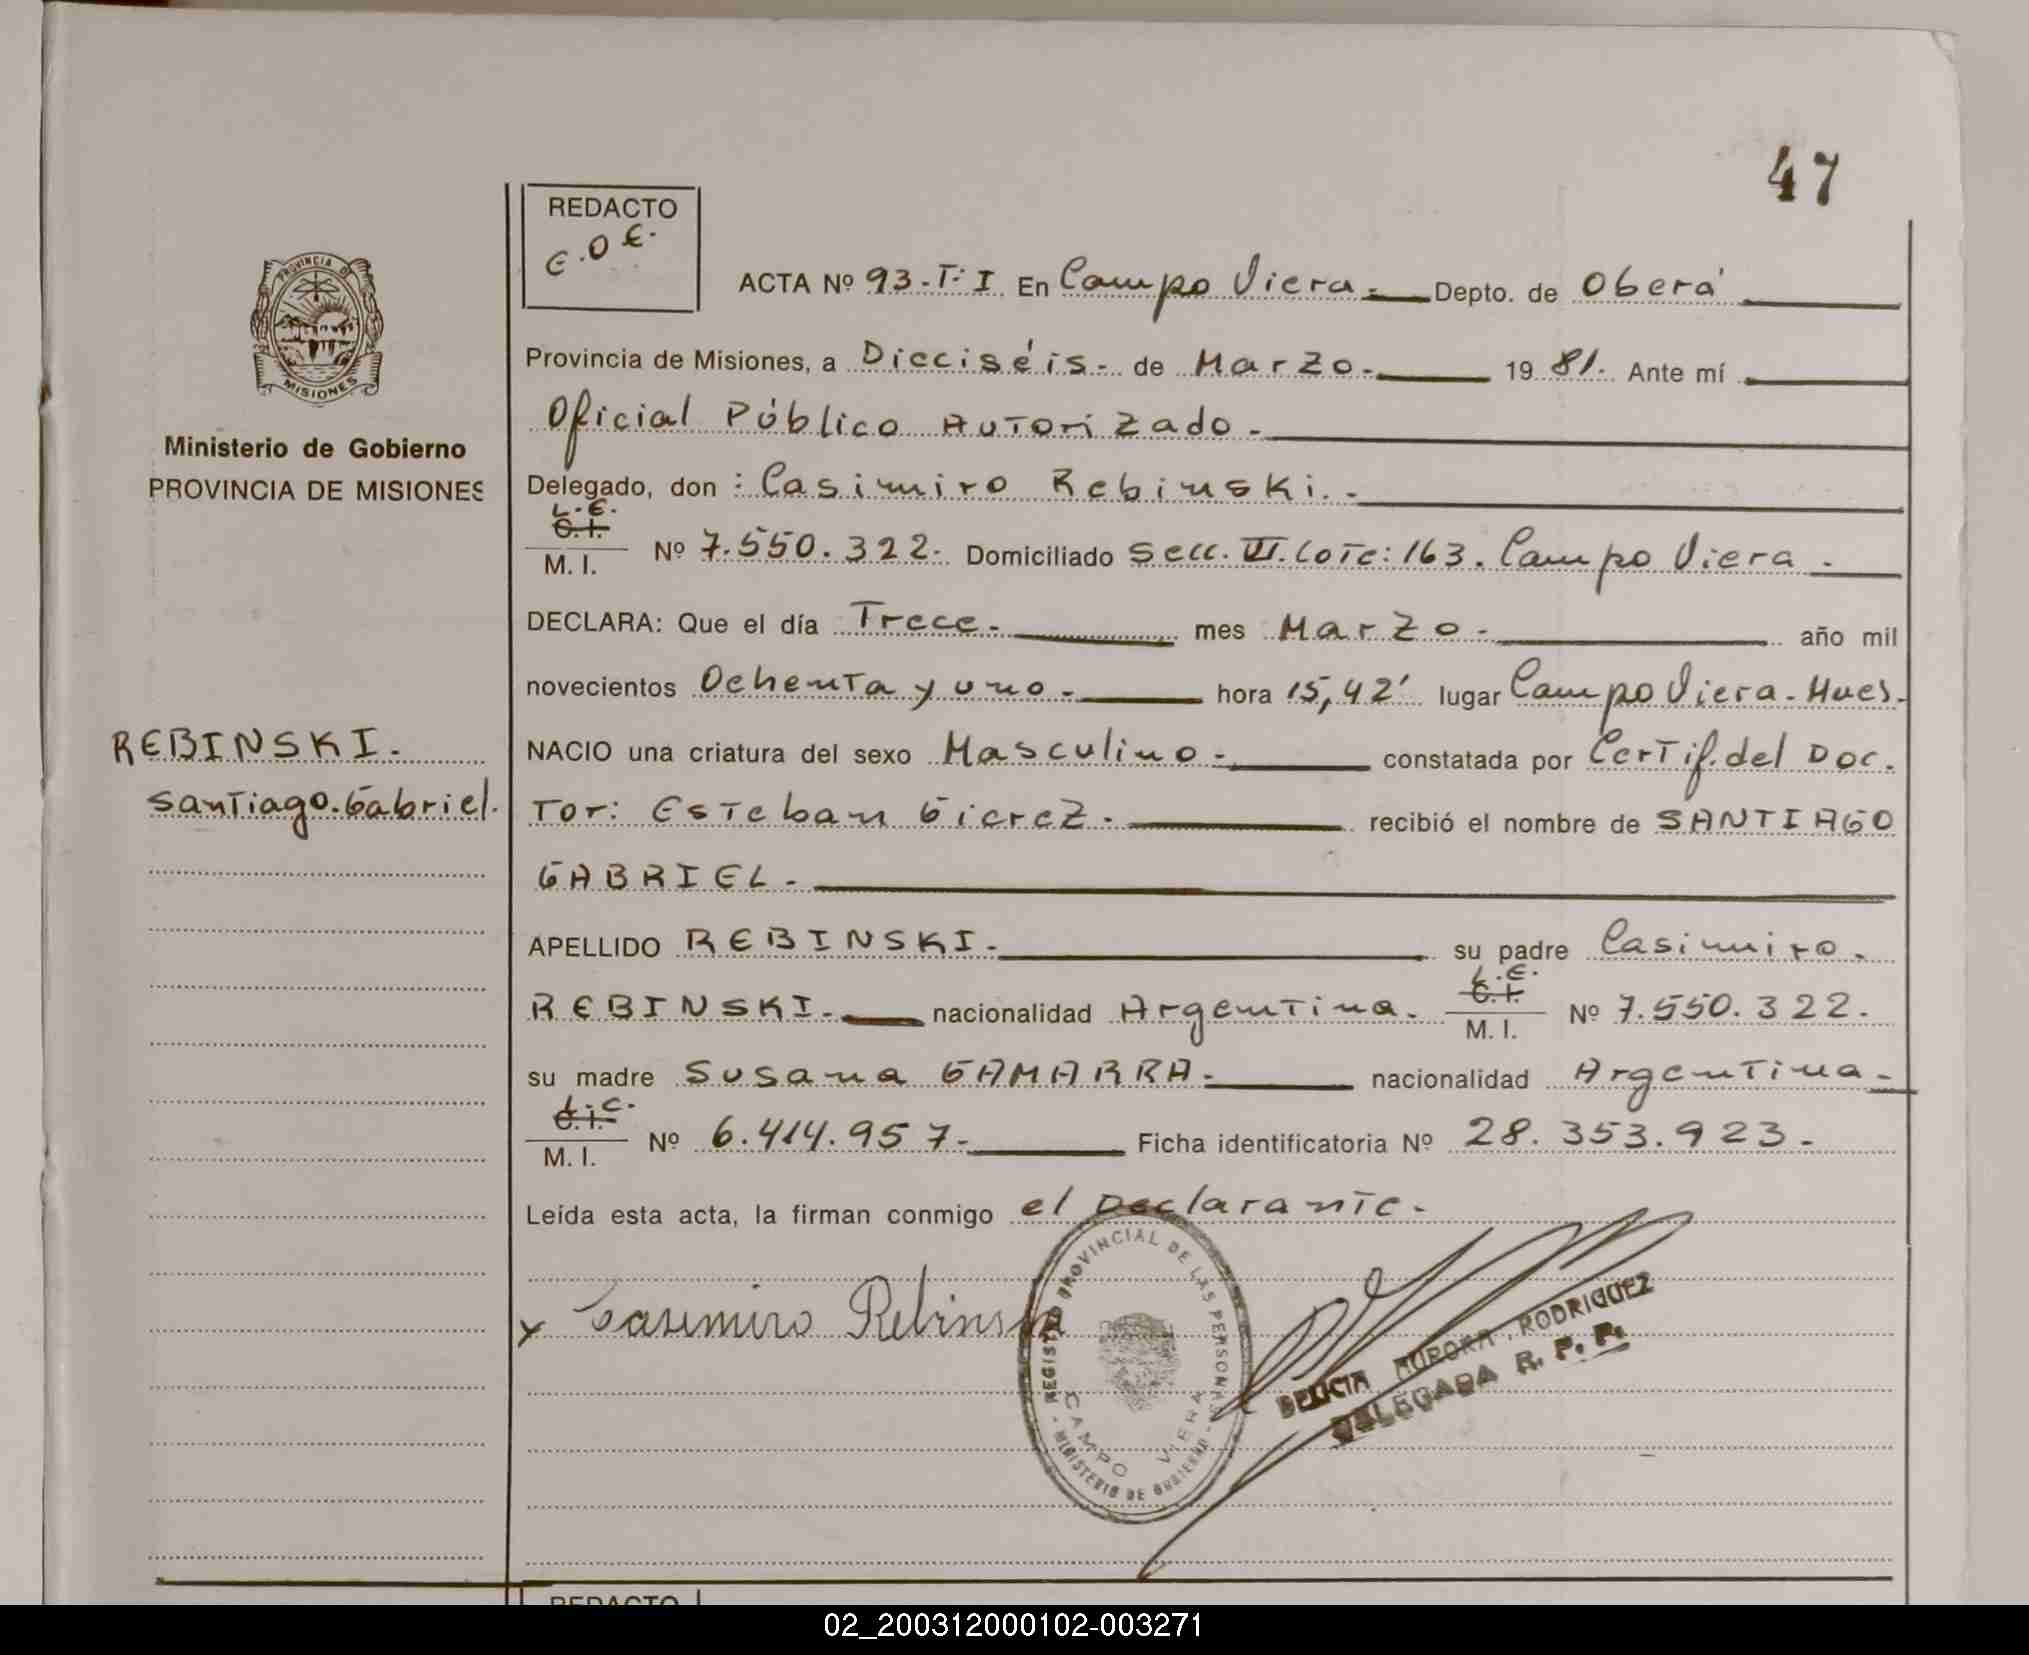 47
REDACTO
E.O.E.
PROVINCIA DE
MISIONES
Ministerio de Gobierno
PROVINCIA DE MISIONES
REBINSKI.
Santiago.Gabriel.
ACTA Nº 93.T:I. En Campo Viera. Depto. de Oberá
Provincia de Misiones, a Dieciséis. de Marzo. 1981. Ante mí
Oficial Público Autorizado.
Delegado, don : Casimiro Rebinski.
L.E.
C.I.
M. I. Nº 7.550.322. Domiciliado Secc. VI. Lote: 163. Campo Viera.
DECLARA: Que el día Trece. mes Marzo. año mil
novecientos Ochenta y uno. hora 15,42' lugar Campo Viera.
NACIO una criatura del sexo Masculino. constatada por Certif. del Doc.
Tor: Esteban Gierez. recibió el nombre de SANTIAGO
GABRIEL.
APELLIDO REBINSKI. su padre Casimiro.
L.E.
C.I.
REBINSKI. nacionalidad Argentina. M. I. Nº 7.550.322.
su madre Susana GAMARRA. nacionalidad Argentina.
L.C.
C.I.
M. I. Nº 6.414.957. Ficha identificatoria Nº 28.353.923.
Leída esta acta, la firman conmigo el Declarante.
x Casimiro Rebinski
REGISTRO PROVINCIAL DE LAS PERSONAS
CAMPO VIERA
MINISTERIO DE GOBIERNO
DELICIA AURORA RODRIGUEZ
DELEGADA R. P. P.
REDACTO
02_200312000102-003271